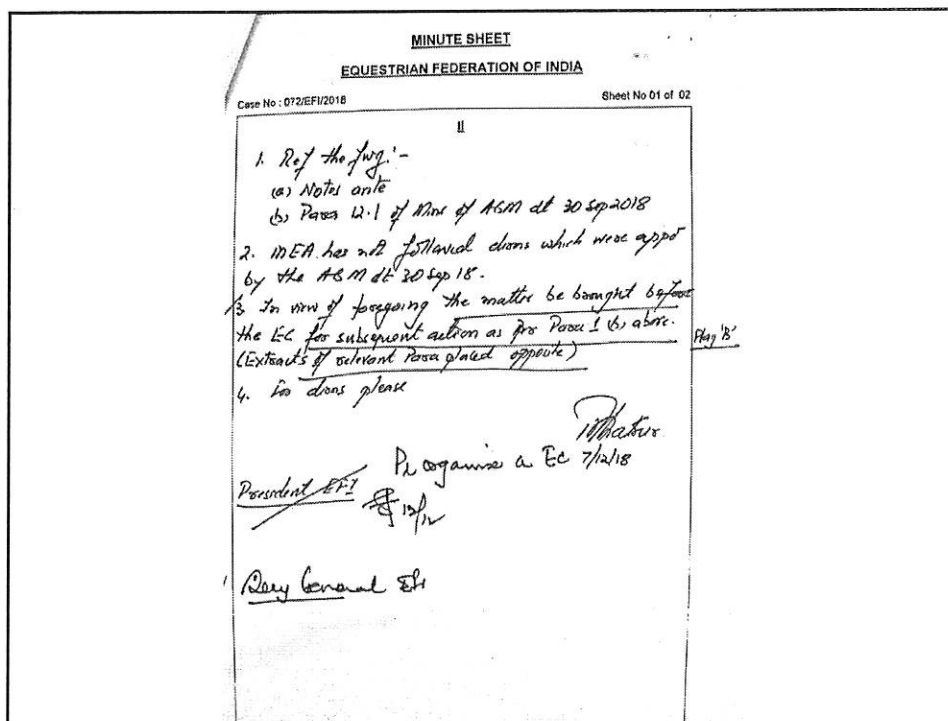 MINUTE SHEET
EQUESTRIAN FEDERATION OF INDIA
Case No : 072/EFI/2018 Sheet No 01 of 02
II
1. Ref the fwg:-
(a) Notes ante
(b) Para 12.1 of Mins of AGM dt 30 Sep 2018
2. MEA has not followed dirns which were appd
by the AGM dt 30 Sep 18.
3 In view of foregoing the matter be brought before
the EC for subsequent action as per Para 1 (b) above.
(Extracts of relevant Para placed opposite) Flag 'B'
4. For dirns please
Pl organise a EC 7/12/18
President EFI
12/12
Secy General EFI